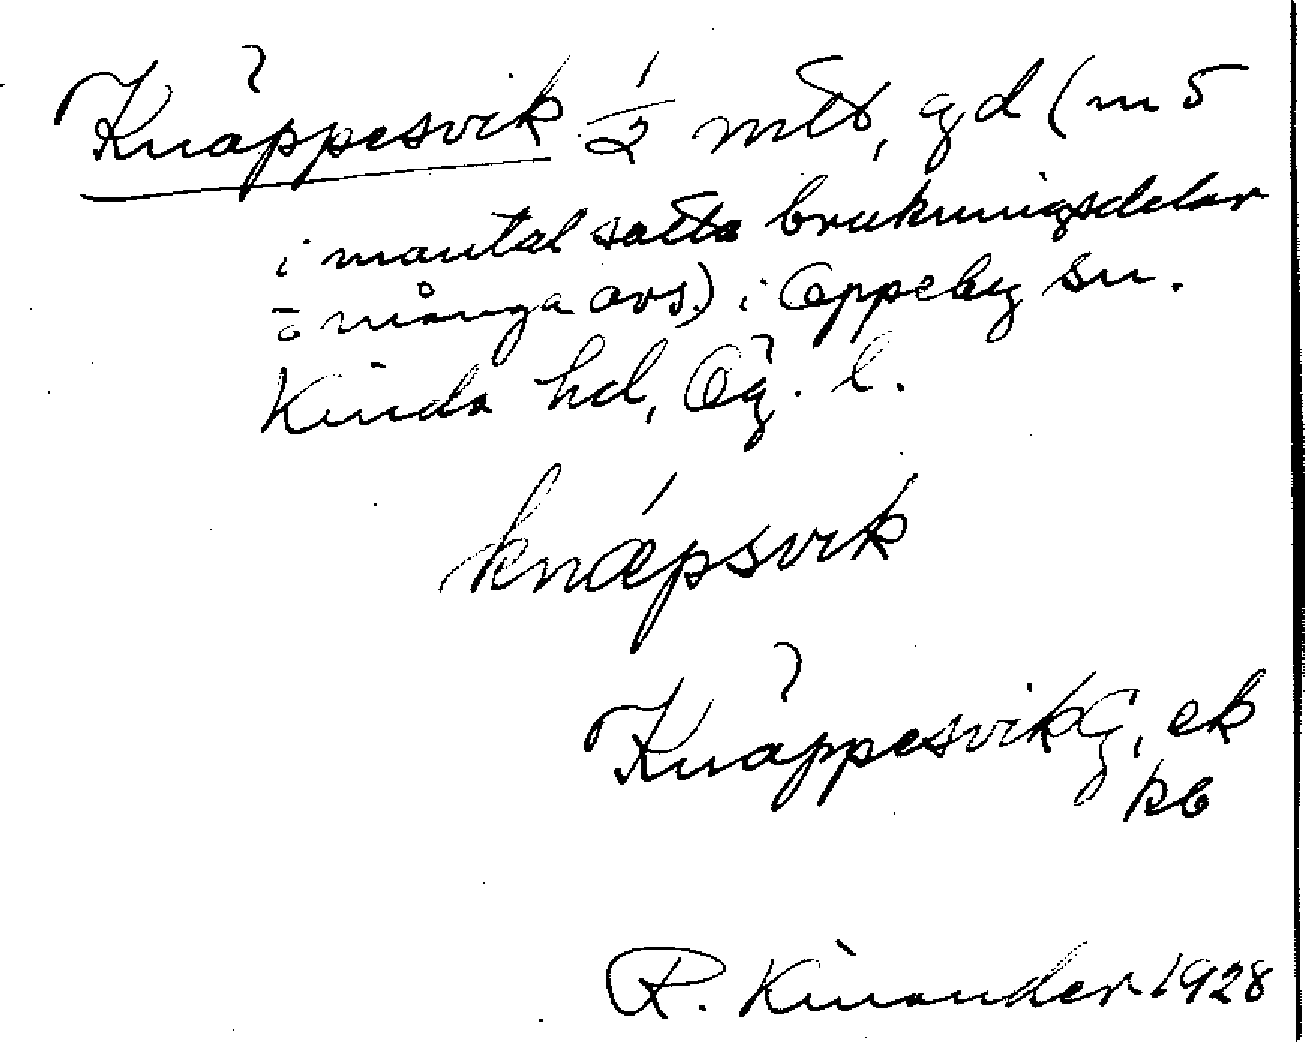 Knäppesvik 1/2 mtl, gd (m 5
i mantal satta brukningsdelar
o många avs.) i Oppeby sn.
Kinda hd, Ög. l.
knǽpsvik
Knäppesvik G, ek
kb
R. Kinander 1928